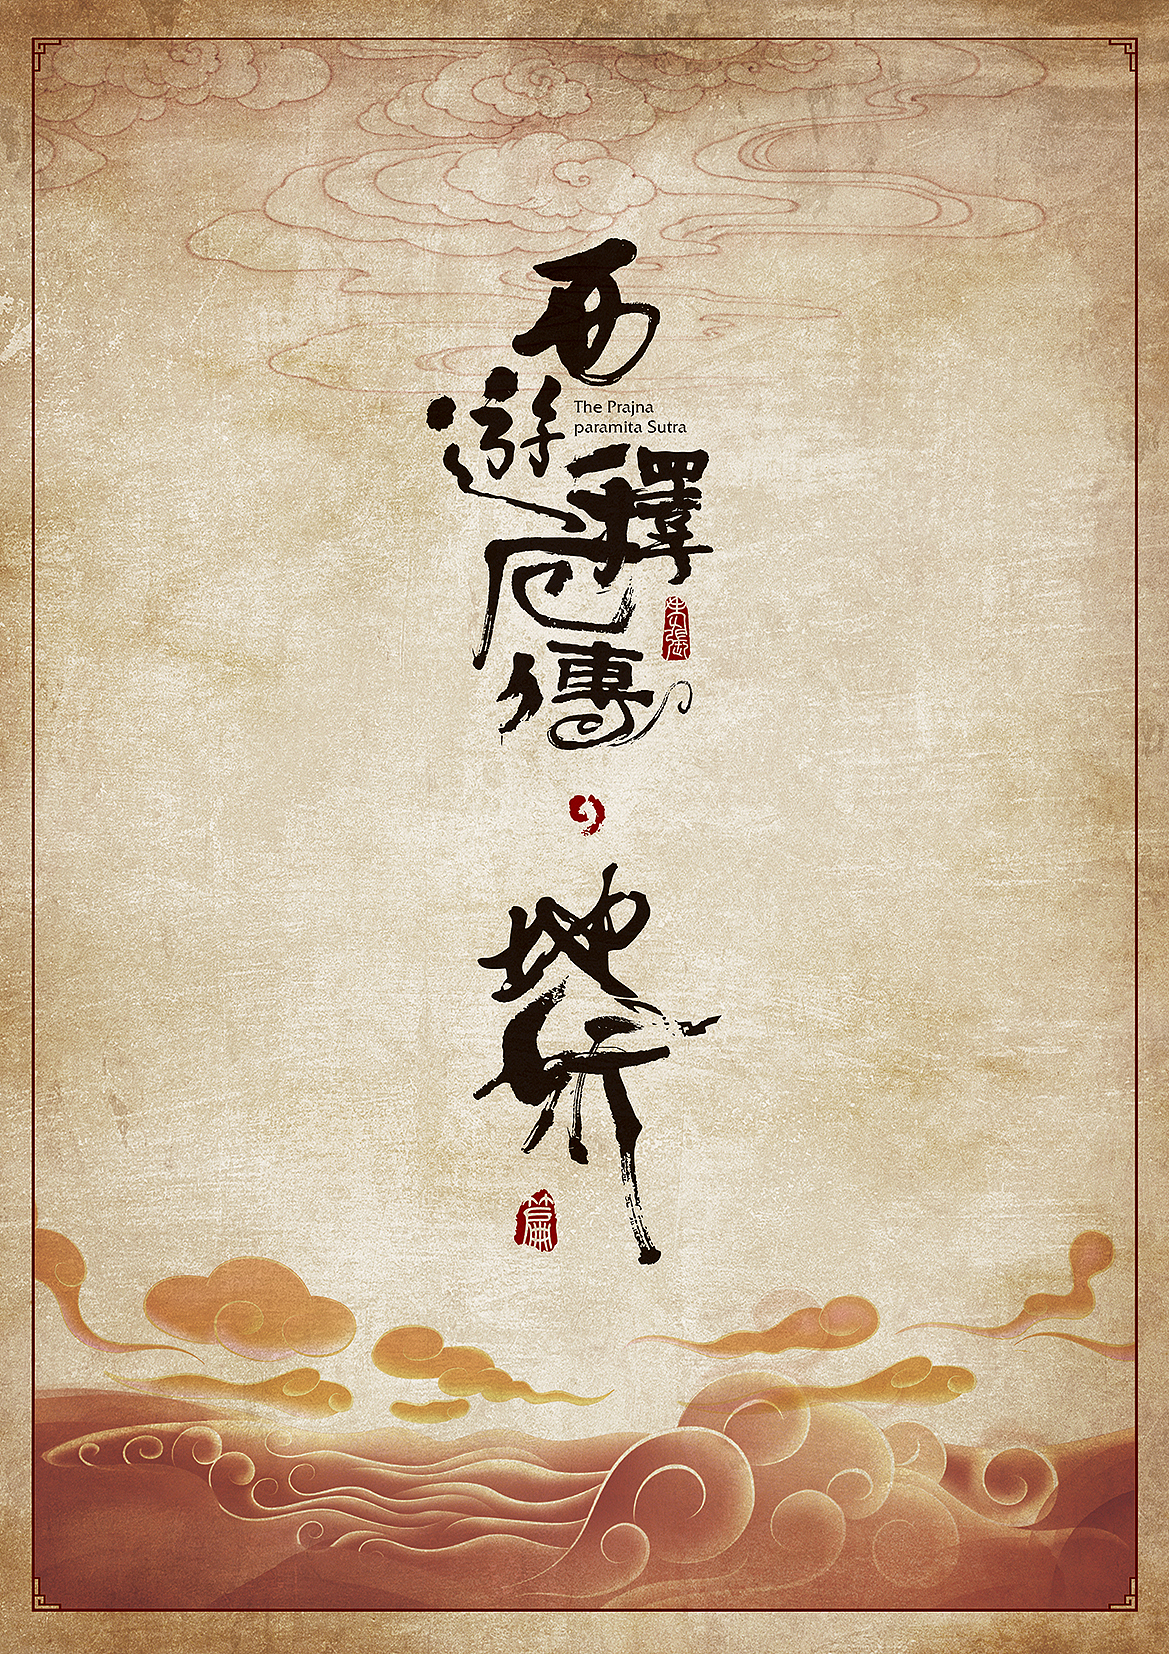 西遊釋厄傳
The Prajna
paramita Sutra
地行
篇